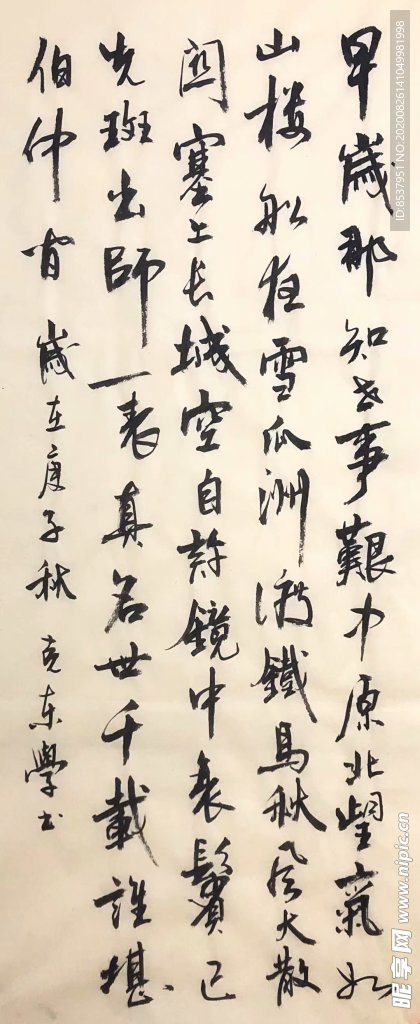 早歲那知世事艱中原北望氣如
山楼船夜雪瓜洲渡鐵馬秋风大散
関塞上长城空自許鏡中衰鬢已
先斑出師一表真名世千載誰堪
伯仲间 歲在庚子秋 克东學书
ID:8537951 NO:20200826141049981998
昵享网 www.nipic.cn